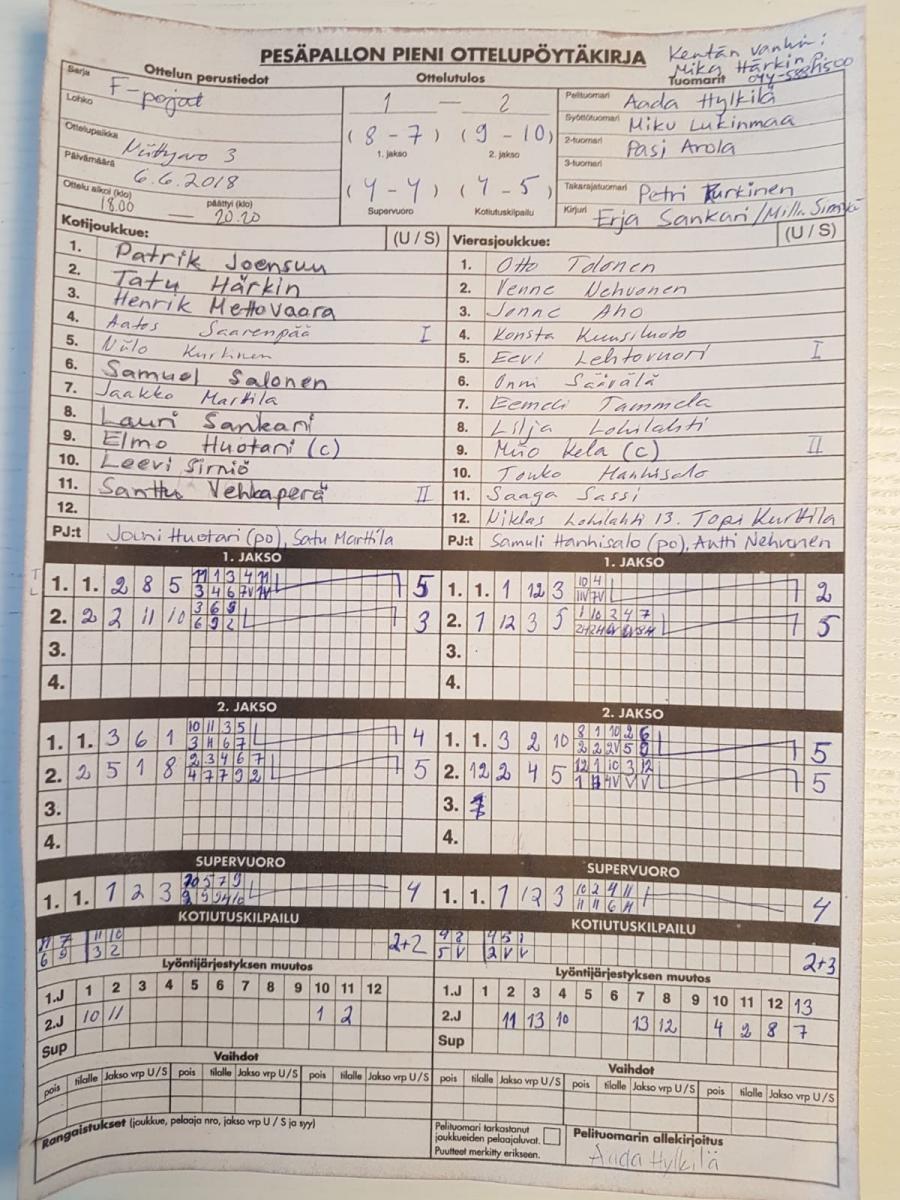 PESÄPALLON PIENI OTTELUPÖYTÄKIRJA
Kentän vanhin:
Mika Härkin
Ottelun perustiedot Ottelutulos Tuomarit
Sarja F-pojat
Lohko
Ottelupaikka Niittyaro 3
Päivämäärä 6.6.2018
Ottelu alkoi (klo) 18.00 — päättyi (klo) 20.20
1 — 2
(8 - 7) (9 - 10)
1. jakso 2. jakso
(4 - 4) (4 - 5)
Supervuoro Kotiutuskilpailu
Pelituomari Aada Hylkilä
Syöttötuomari Miku Lukinmaa
2-tuomari Pasi Arola
3-tuomari
Takarajatuomari Petri Kurkinen
Kirjuri Erja Sankari /
Kotijoukkue: (U / S)
1. Patrik Joensuu
2. Tatu Härkin
3. Henrik Mettovaara
4. Aatos Saarenpää I
5. Niilo Kurkinen
6. Samuel Salonen
7. Jaakko Marttila
8. Lauri Sankari
9. Elmo Huotari (c)
10. Leevi Sirniö
11. Santtu Vehkaperä II
12.
PJ:t Jouni Huotari (po), Satu Marttila
Vierasjoukkue: (U / S)
1. Otto Tolonen
2. Venne Nehvonen
3. Jonne Aho
4. Konsta Kuusiluoto
5. Eevi Lehtovuori I
6. Onni Säävälä
7. Eemeli Tammela
8. Lilja Lohilahti
9. Miio Kela (c) II
10. Touko Hanhisalo
11. Saaga Sassi
12. Niklas Lohilahti 13. Topi Kurttila
PJ:t Samuli Hanhisalo (po), Antti Nehvonen
1. JAKSO
1. 1. 2 8 5 11 1 3 4 11 5
3 4 6 7V 1V
2. 2 2 11 10 3 6 9 3
6 9 2
3.
4.
1. JAKSO
1. 1. 1 12 3 10 4 2
11V 7V
2. 1 12 3 5 1 10 2 4 7 5
3.
4.
2. JAKSO
1. 1. 3 6 1 10 11 3 5 4
3 11 6 7
2. 2 5 1 8 2 3 4 6 7 5
4 7 7 9 2
3.
4.
2. JAKSO
1. 1. 3 2 10 8 1 10 2 6 5
2 2 2V 5
2. 12 2 4 5 12 1 10 3 12 5
3.
4.
SUPERVUORO
1. 1. 1 2 3 10 5 7 9 4
SUPERVUORO
1. 1. 1 12 3 10 2 4 11 4
11 11 6
KOTIUTUSKILPAILU
11 7 11 10 2+2
6 9 3 2
KOTIUTUSKILPAILU
4 8 4 5 1 2+3
5 V 2 V V
Lyöntijärjestyksen muutos
1.J 1 2 3 4 5 6 7 8 9 10 11 12
2.J 10 11 1 2
Sup
Lyöntijärjestyksen muutos
1.J 1 2 3 4 5 6 7 8 9 10 11 12 13
2.J 11 13 10 13 12 4 2 8 7
Sup
Vaihdot
pois tilalle Jakso vrp U / S pois tilalle Jakso vrp U / S pois tilalle Jakso vrp U / S
Vaihdot
pois tilalle Jakso vrp U / S pois tilalle Jakso vrp U / S pois tilalle Jakso vrp U / S
Rangaistukset (joukkue, pelaaja nro, jakso vrp U / S ja syy)
Pelituomari tarkastanut
joukkueiden pelaajaluvat.
Puutteet merkitty erikseen.
Pelituomarin allekirjoitus
Aada Hylkilä